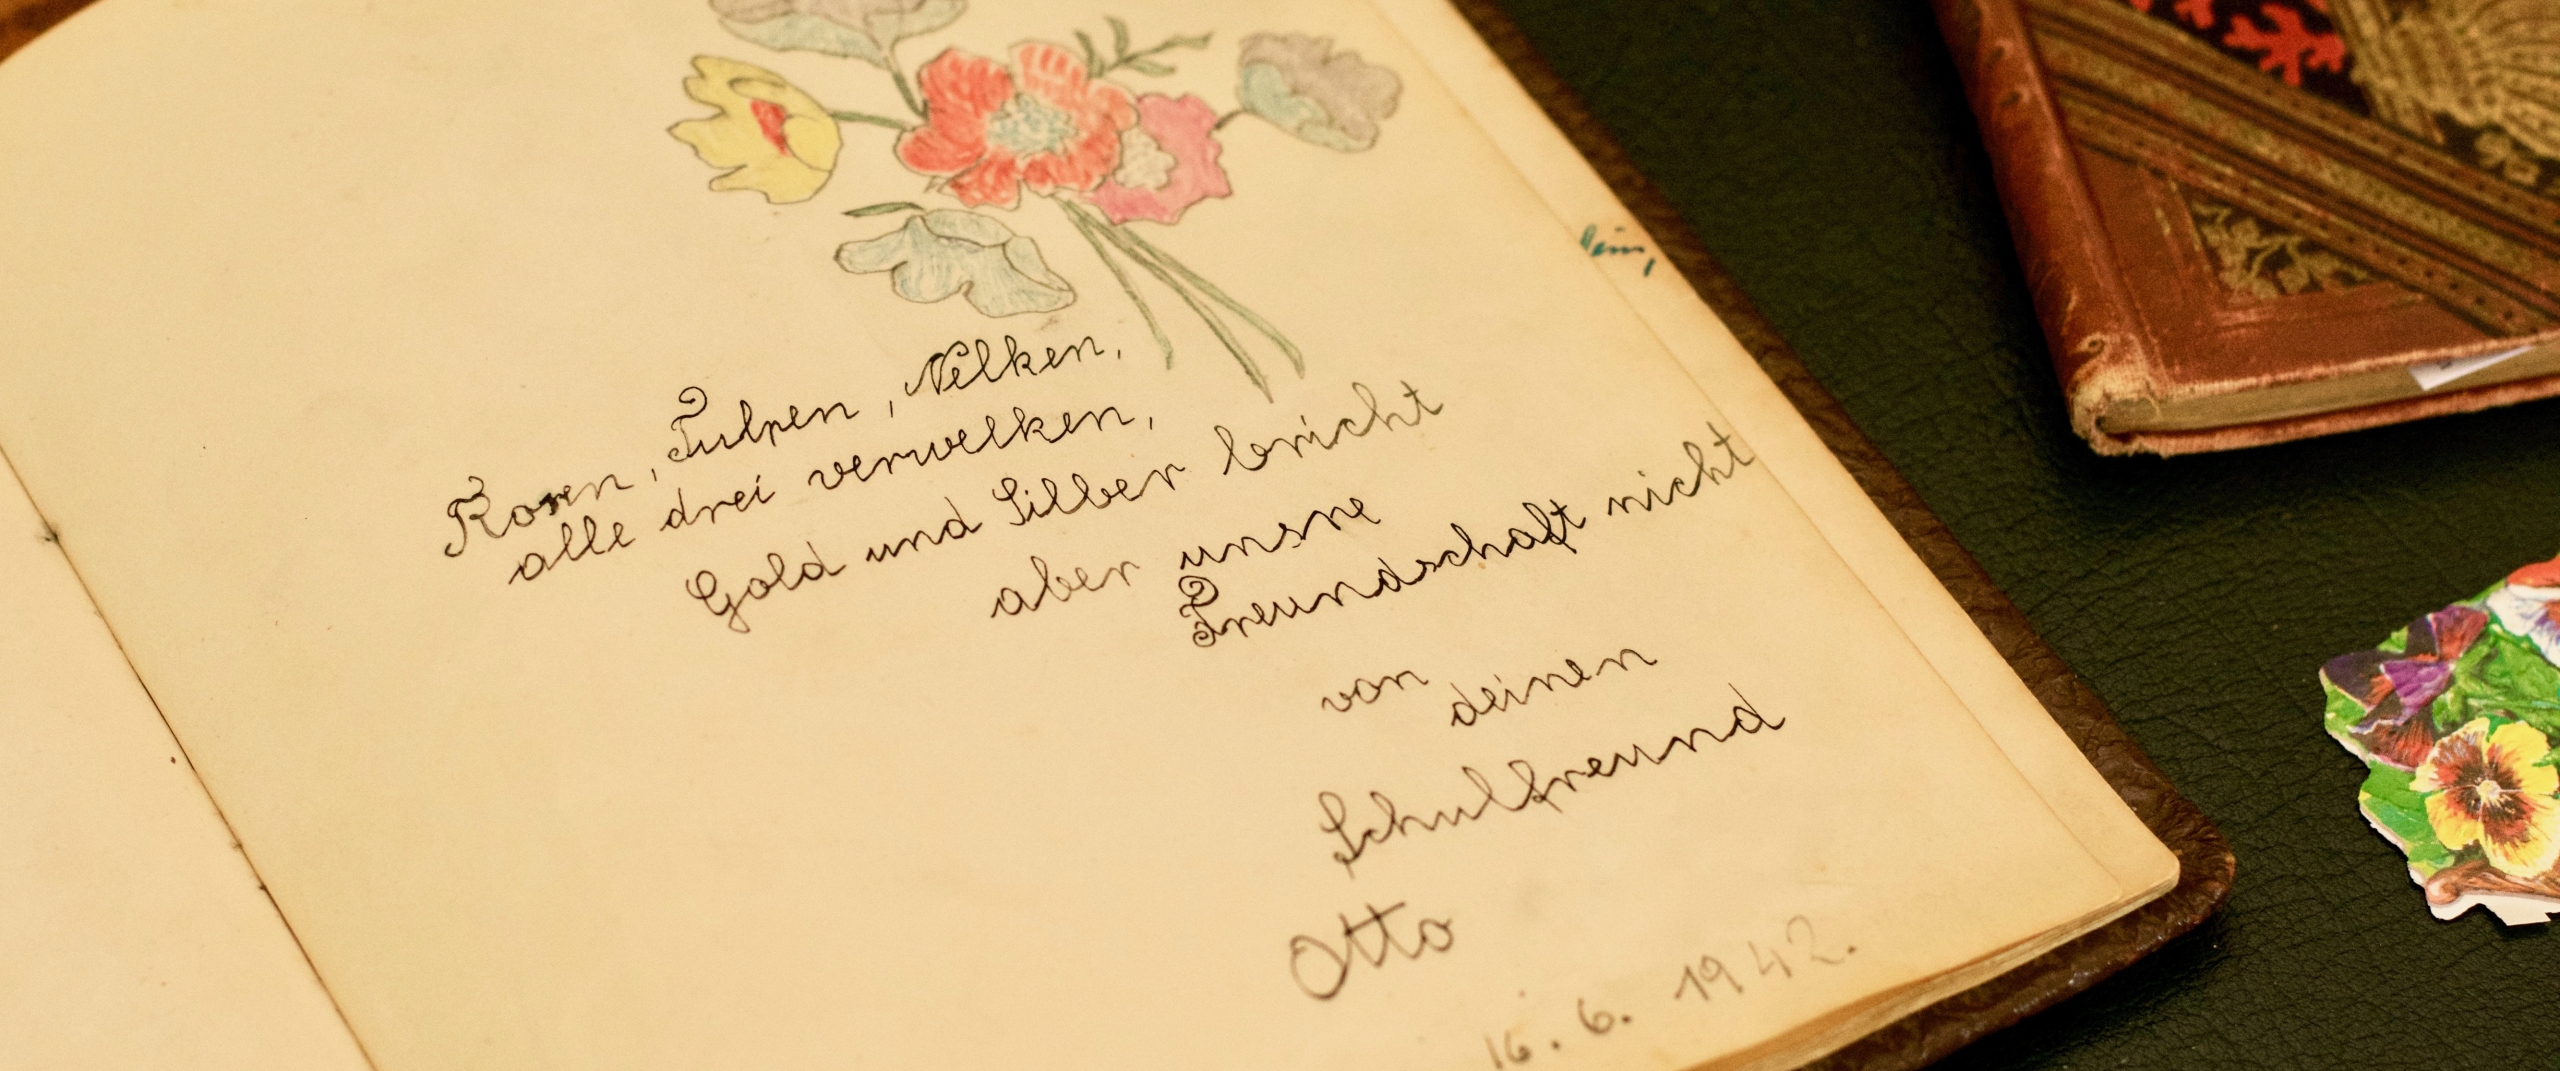 Rosen, Tulpen, Nelken,
alle drei verwelken,
Gold und Silber bricht
aber unsre
Freundschaft nicht
von
deinen
Schulfreund
Otto
16. 6. 1942.